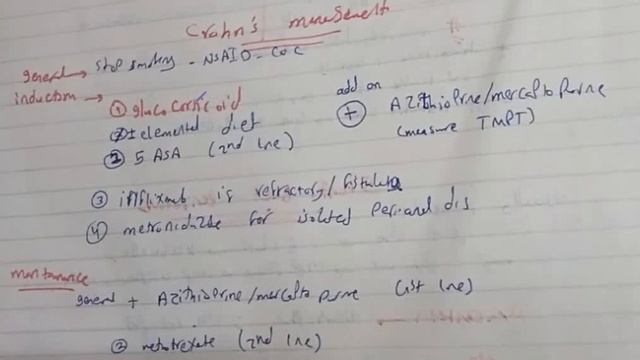 Crohn's management
general → stop smoking - NSAID - COC
induction → ① glucocorticoid
② ± elemental diet
② 5 ASA (2nd line)
add on
+ Azithioprine/mercaptopurine
(measure TMPT)
③ infliximab is refractory/fistula
④ metronidazole for isolated peri-anal dis
maintenance
general + Azithioprine/mercaptopurine (1st line)
② methotrexate (2nd line)